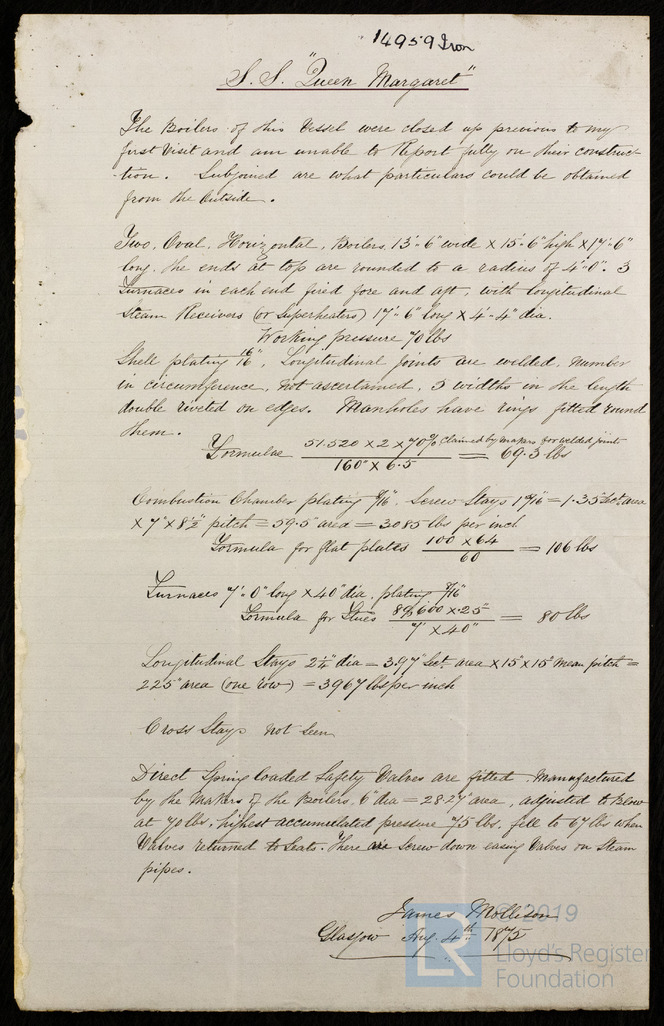 14959 Iron
S. S. "Queen Margaret"
The Boilers of this Vessel were closed up previous to my
first Visit and am unable to Report fully on their construc-
-tion. Subjoined are what particulars could be obtained
from the Outside.
Two, Oval, Horizontal, Boilers, 13'-6" wide × 15'-6" high × 17'-6"
long, the ends at top are rounded to a radius of 4'-0". 3
Furnaces in each end fired fore and aft, with longitudinal
Steam Receivers (or Superheaters) 17'-6" long × 4'-4" dia.
Working pressure 70 lbs
Shell plating /16", Longitudinal joints are welded, number
in circumference, not ascertained, 5 widths in the length
double riveted on edges. Manholes have rings fitted round
them.
Formulae 51.520 × 2 × 70% claimed by makers for welded joints
160" × 6.5 = 69.3 lbs
Combustion Chamber plating /16" Screw Stays 1 /16" = 1.35 Sect. area
× 7" × 8½" pitch = 59.5 area = 3085 lbs per inch
Formula for flat plates 100 × 64
60 = 106 lbs
Furnaces 7'-0" long × 40" dia, plating /16"
Formula for Flues 89,600 × .25
7' × 40" = 80 lbs
Longitudinal Stays 2¼" dia = 3.97" Sect. area × 15" × 15" mean pitch =
225" area (one row) = 3967 lbs per inch
Cross Stays not seen
Direct Spring loaded Safety Valves are fitted manufactured
by the Makers of the Boilers, 6" dia = 28.27" area, adjusted to blow
at 70 lbs, highest accumulated pressure 75 lbs, fell to 67 lbs when
Valves returned to Seats. There are screw down easing Valves on Steam
pipes.
James Mollison
Glasgow Aug. 4th 1875
© 2019
LR
Lloyd's Register
Foundation